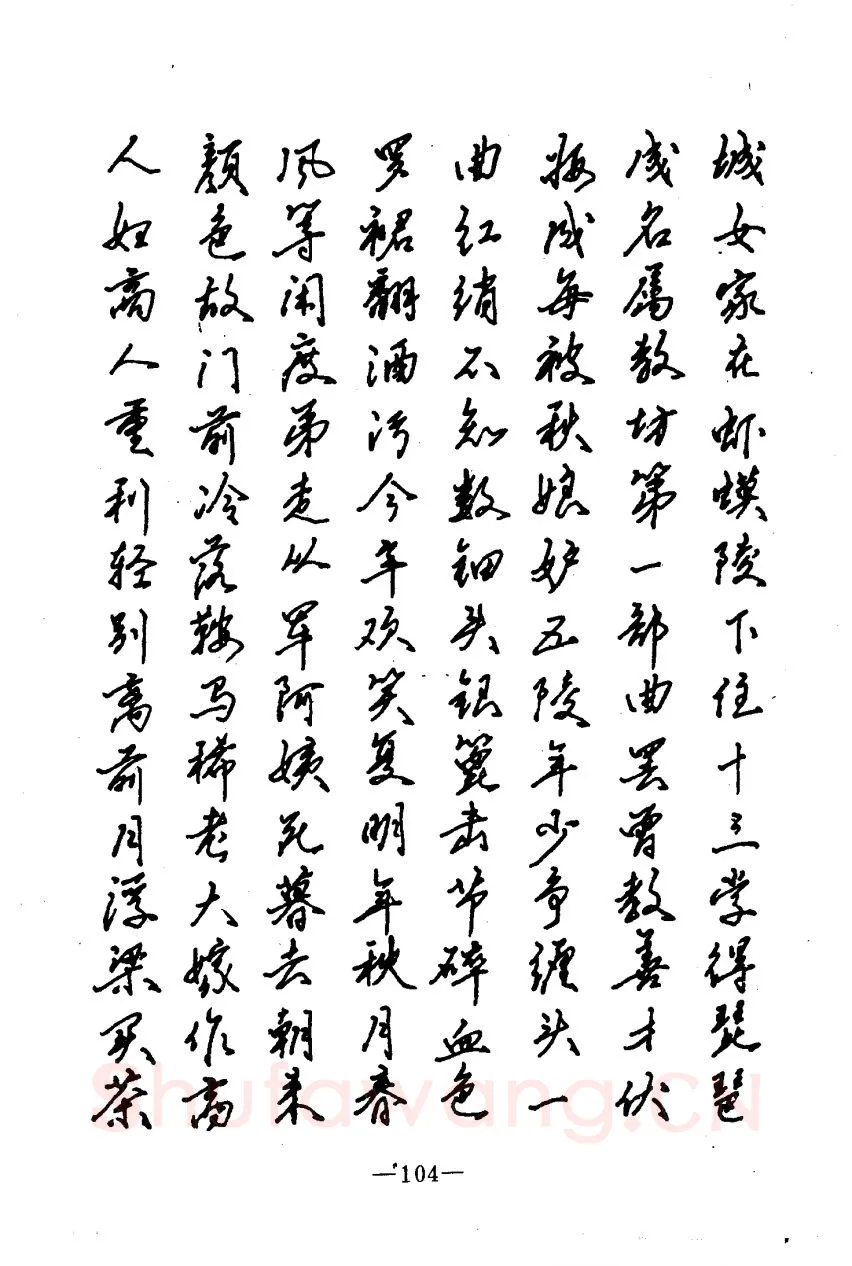 城女家在虾蟆陵下住十三学得琵琶
成名属教坊第一部曲罢曾教善才伏
妝成每被秋娘妒五陵年少争缠头一
曲红绡不知数钿头银篦击节碎血色
罗裙翻酒污今年欢笑复明年秋月春
风等闲度弟走从军阿姨死暮去朝来
颜色故门前冷落鞍马稀老大嫁作商
人妇商人重利轻别离前月浮梁买茶
—104—
Shufawang.CN